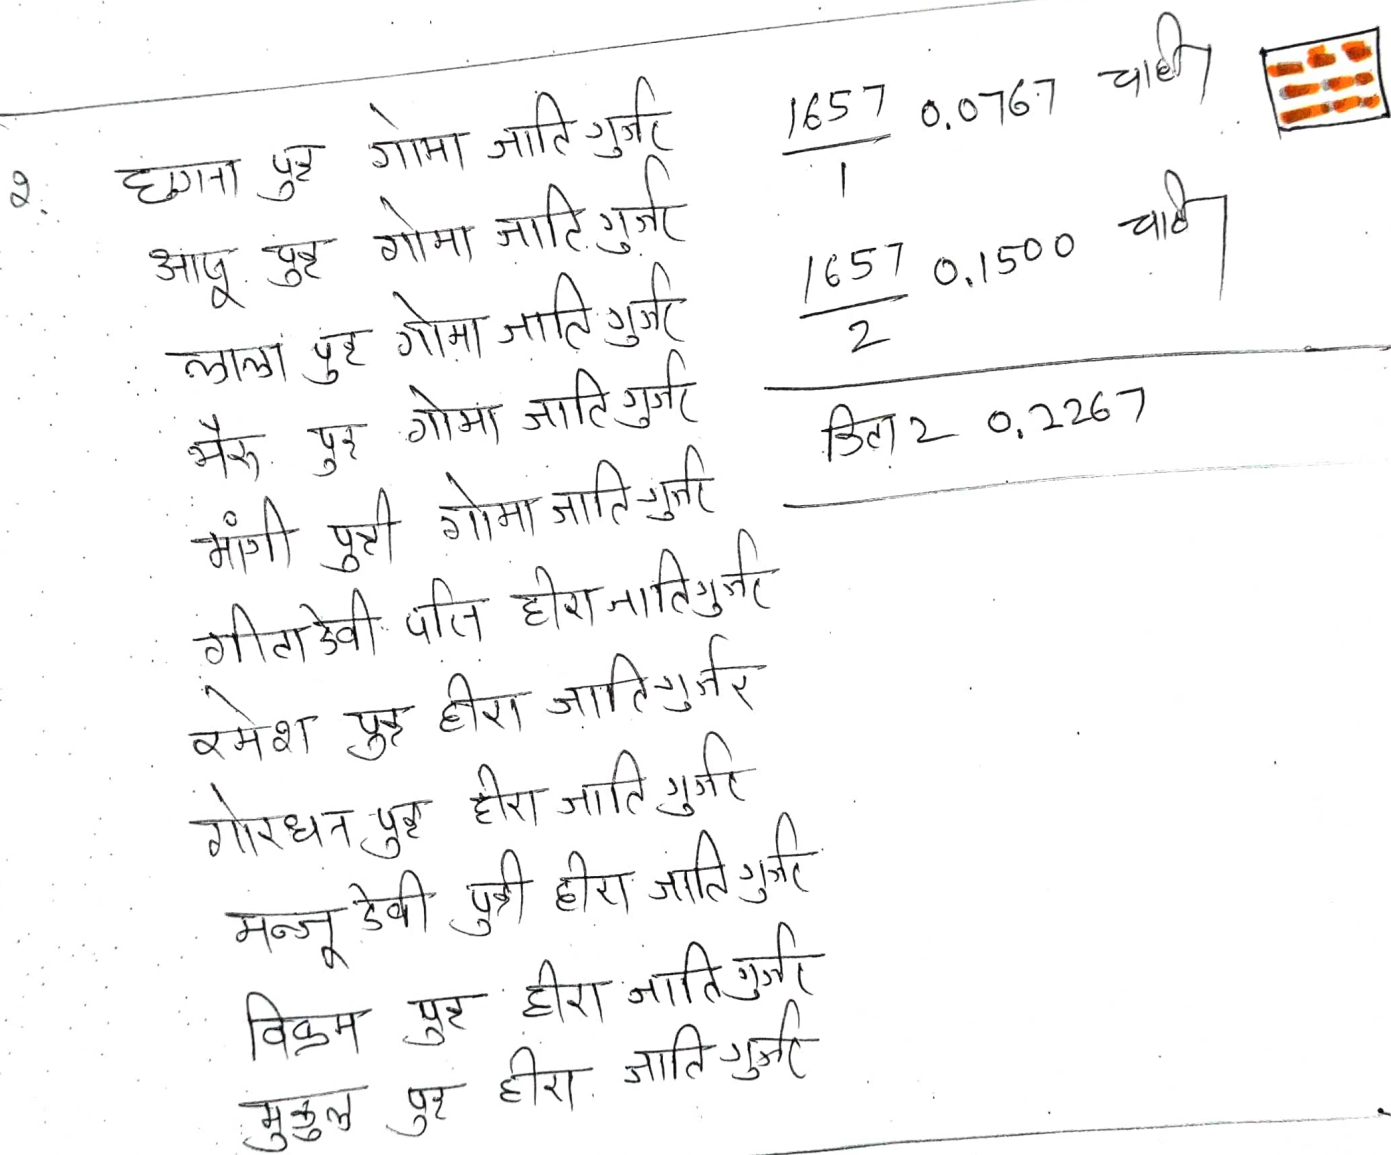 २. छगना पुत्र गोमा जाति गुर्जर
आजू पुत्र गोमा जाति गुर्जर
लाला पुत्र गोमा जाति गुर्जर
भैरू पुत्र गोमा जाति गुर्जर
मांगी पुत्री गोमा जाति गुर्जर
गीता देवी पत्नि हीरा जाति गुर्जर
रमेश पुत्र हीरा जाति गुर्जर
गोरधन पुत्र हीरा जाति गुर्जर
मन्जू देवी पुत्री हीरा जाति गुर्जर
विक्रम पुत्र हीरा जाति गुर्जर
मुकुल पुत्र हीरा जाति गुर्जर
1657/1 0.0767 चाही
1657/2 0.1500 चाही
किता 2 0.2267